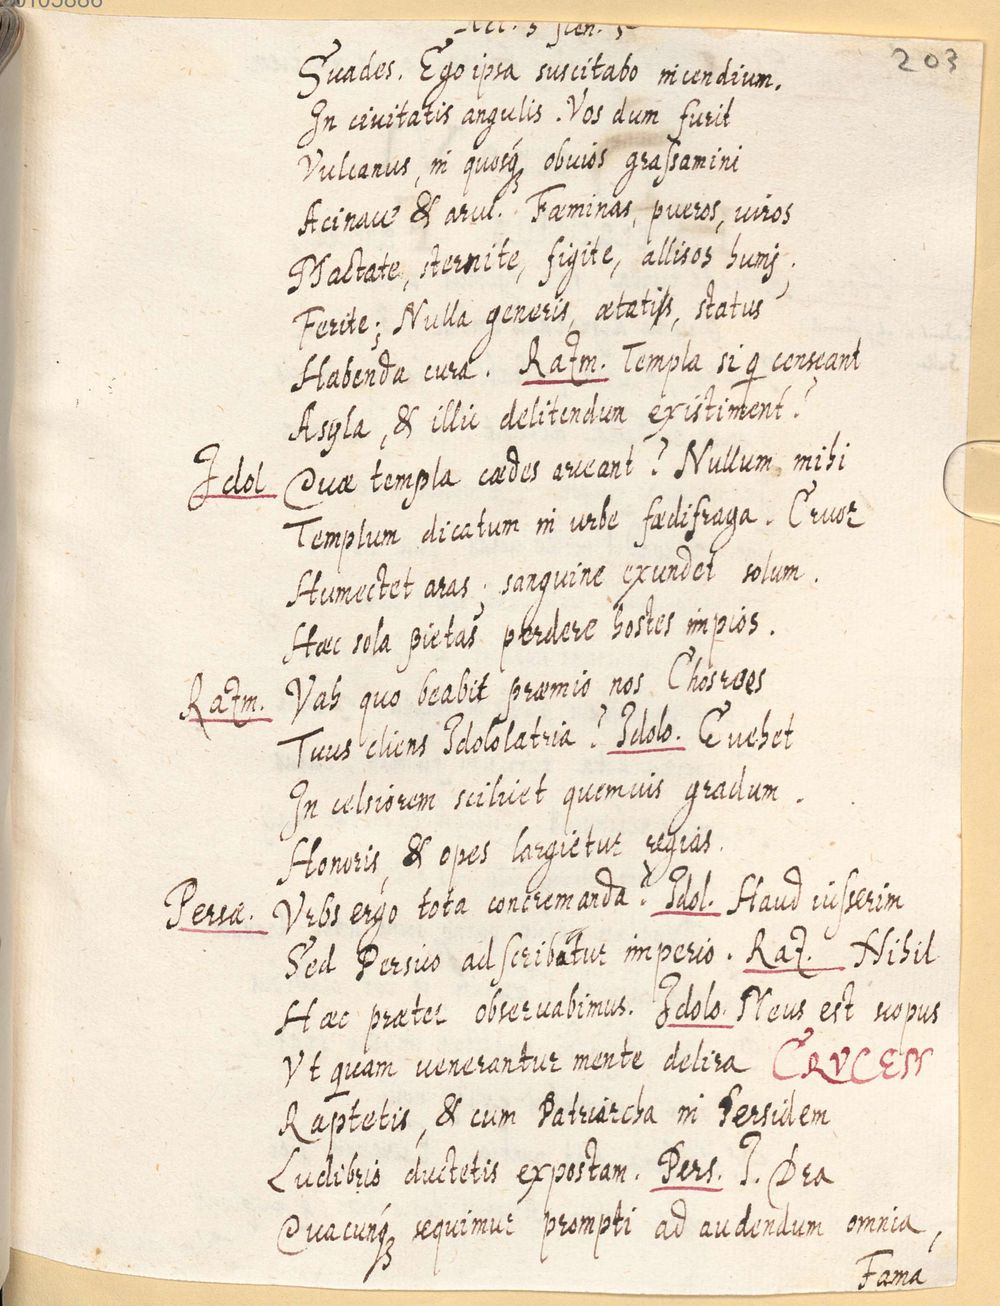 Act. 3 scen. 5
203
Suades. Ego ipsa suscitabo incendium.
In ciuitatis angulis. Vos dum furit
Vulcanus, in quosq; obuios graſsamini
Acinace & arcu. Fæminas, pueros, uiros
Mactate, sternite, figite, allisos humj
Ferite; Nulla generis, ætatis, status
Habenda cura. Razm. Templa si q conseant
Asyla, & illic delitendum existiment?
Idol Quæ templa cædes arceant? Nullum mihi
Templum dicatum in urbe fædifraga. Cruor
Humectet aras, sanguine exundet solum.
Hæc sola pietas perdere hostes impios.
Razm. Vah quo beabit præmio nos Chosroes
Tuus cliens Idololatria? Idolo. Euehet
In celsiorem scilicet quemuis gradum.
Honoris, & opes largietur regias.
Persæ. Vrbs ergo tota concremanda? Idol. Haud iuſserim
Sed Persico adscribatur imperio. Raz. Nihil
Hæc præter obseruabimus. Idolo. Meus est scopus
Vt quam uenerantur mente delira CRVCEM
Raptetis, & cum Patriarcha in Persidem
Ludibrio ductetis expostam. Pers. I. Dea
Quacunq; sequimur prompti ad audendum omnia,
Fama